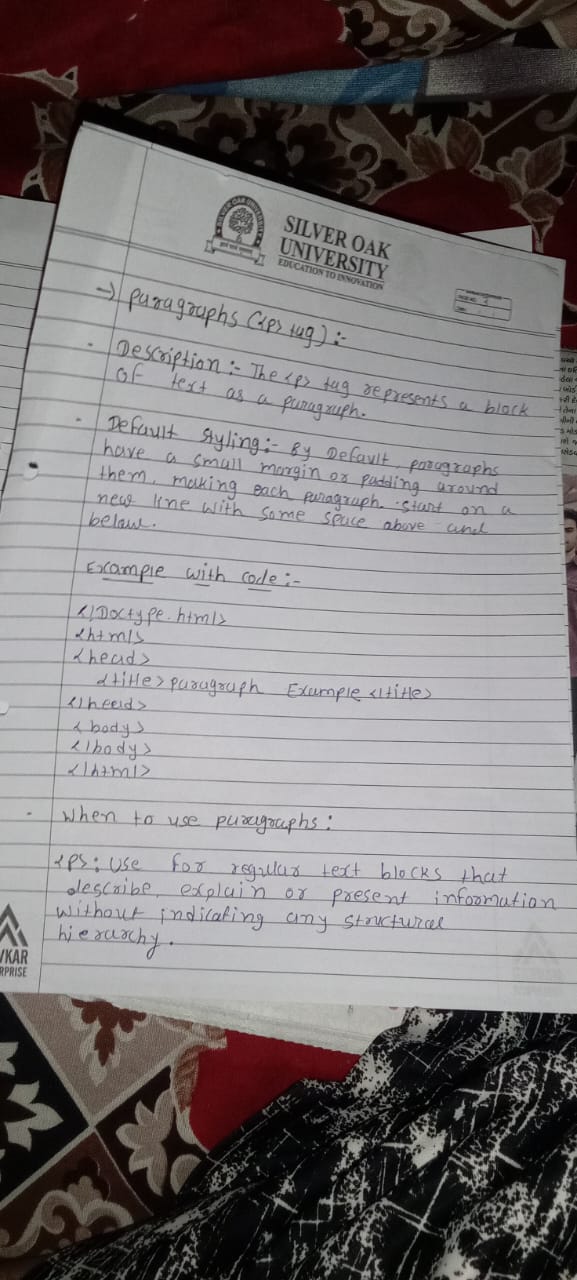 SILVER OAK
UNIVERSITY
EDUCATION TO INNOVATION
→ paragraphs (<p> tag) :-
· Description :- The <p> tag represents a block
of text as a paragraph.
· Default styling :- By Default, paragraphs
have a small margin or padding around
them, making each paragraph start on a
new line with some space above and
below.
Example with code :-
<!Doctype.html>
<html>
<head>
<title>paragraph Example </title>
</head>
<body>
</body>
</html>
· when to use paragraphs :
<p> : Use for regular text blocks that
describe, explain or present information
without indicating any structural
hierarchy.
VKAR
RPRISE